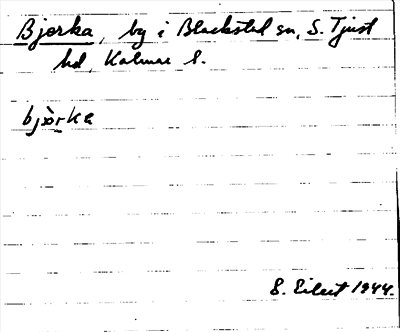 Bjorka, by i Blackstad sn, S. Tjust
hd, Kalmar l.
björka
S. Eilert 1944.